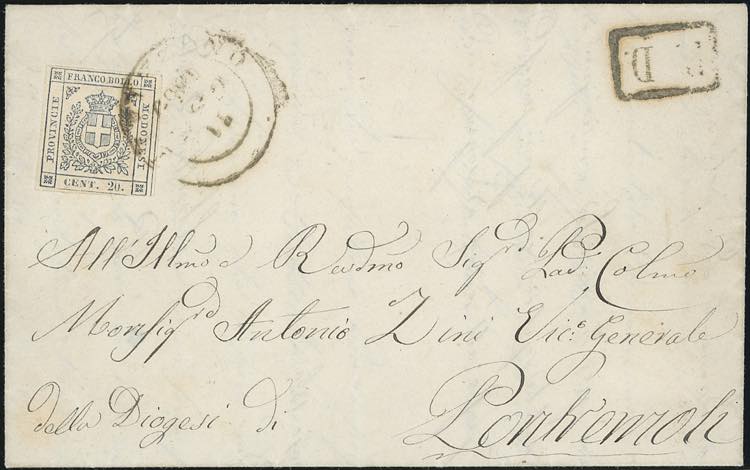 FRANCO BOLLO
PROVINCIE
MODONESI
CENT. 20.
P. D.
All'Illmo e Revdmo Sigrd Pad. Colmo
Monsigrd Antonio Zini Vico. Generale
della Diogesi di
Pontremoli